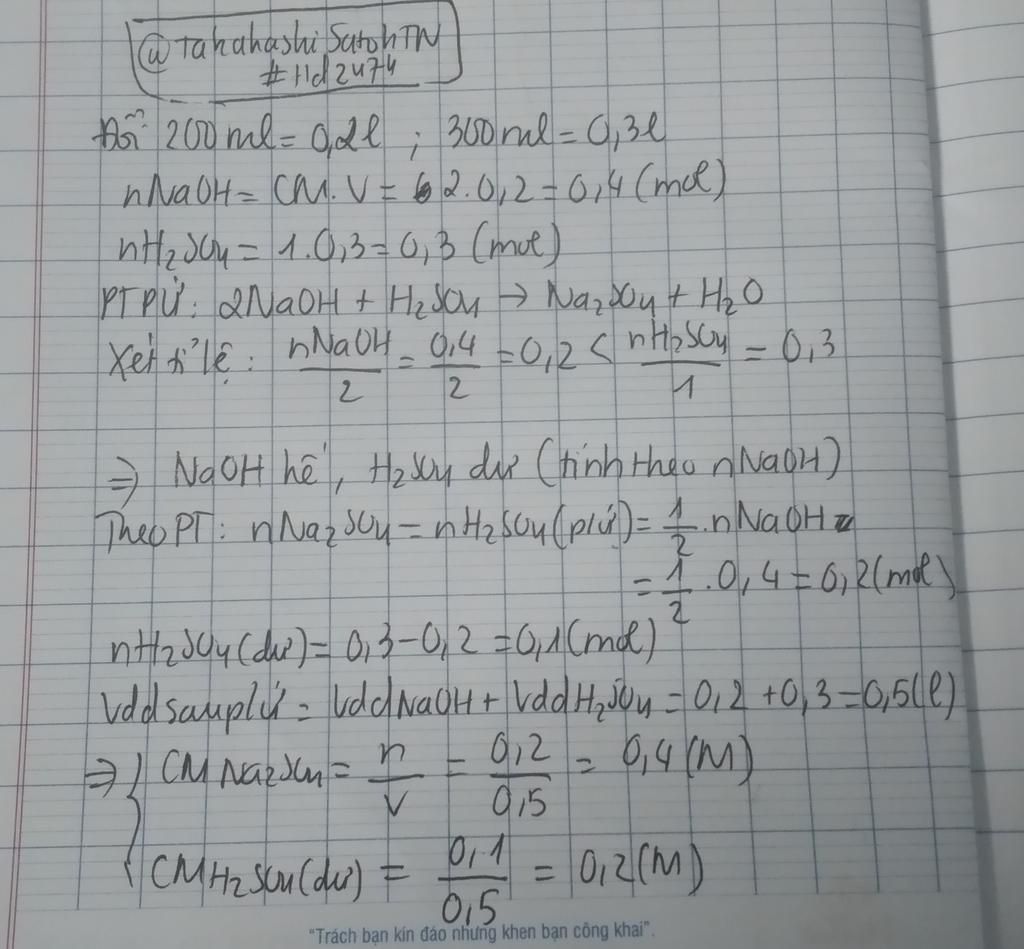 @Takahashi Satoh TN
#Hd2474
Đổi 200ml = 0,2l ; 300ml = 0,3l
nNaOH = CM.V = 2.0,2 = 0,4 (mol)
nH₂SO₄ = 1.0,3 = 0,3 (mol)
PTPỨ: 2NaOH + H₂SO₄ → Na₂SO₄ + H₂O
Xét tỉ lệ: nNaOH/2 = 0,4/2 = 0,2 < nH₂SO₄/1 = 0,3
⇒ NaOH hế, H₂SO₄ dư (tính theo nNaOH)
Theo PT: nNa₂SO₄ = nH₂SO₄ (pứ) = 1/2 . nNaOH
= 1/2 . 0,4 = 0,2 (mol)
nH₂SO₄ (dư) = 0,3 - 0,2 = 0,1 (mol)
Vdd sau pứ = Vdd NaOH + Vdd H₂SO₄ = 0,2 + 0,3 = 0,5 (l)
⇒ { CM Na₂SO₄ = n/V = 0,2/0,5 = 0,4 (M)
CM H₂SO₄ (dư) = 0,1/0,5 = 0,2 (M)
"Trách bạn kín đáo nhưng khen bạn công khai".